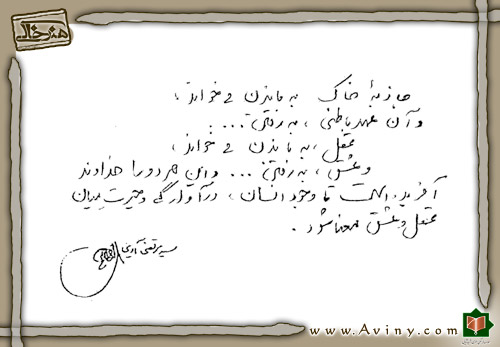 هنر خاکی
جاذبهٔ خاک به ماندن می‌خواند،
و آن عهد باطنی، به رفتن....
عقل، به ماندن می‌خواند،
و عشق، به رفتن... و این هر دو را خداوند
آفریده است تا وجود انسان، در آوارگی و حیرت میان
عقل و عشق معنا شود.
سید مرتضی آوینی
www.Aviny.com